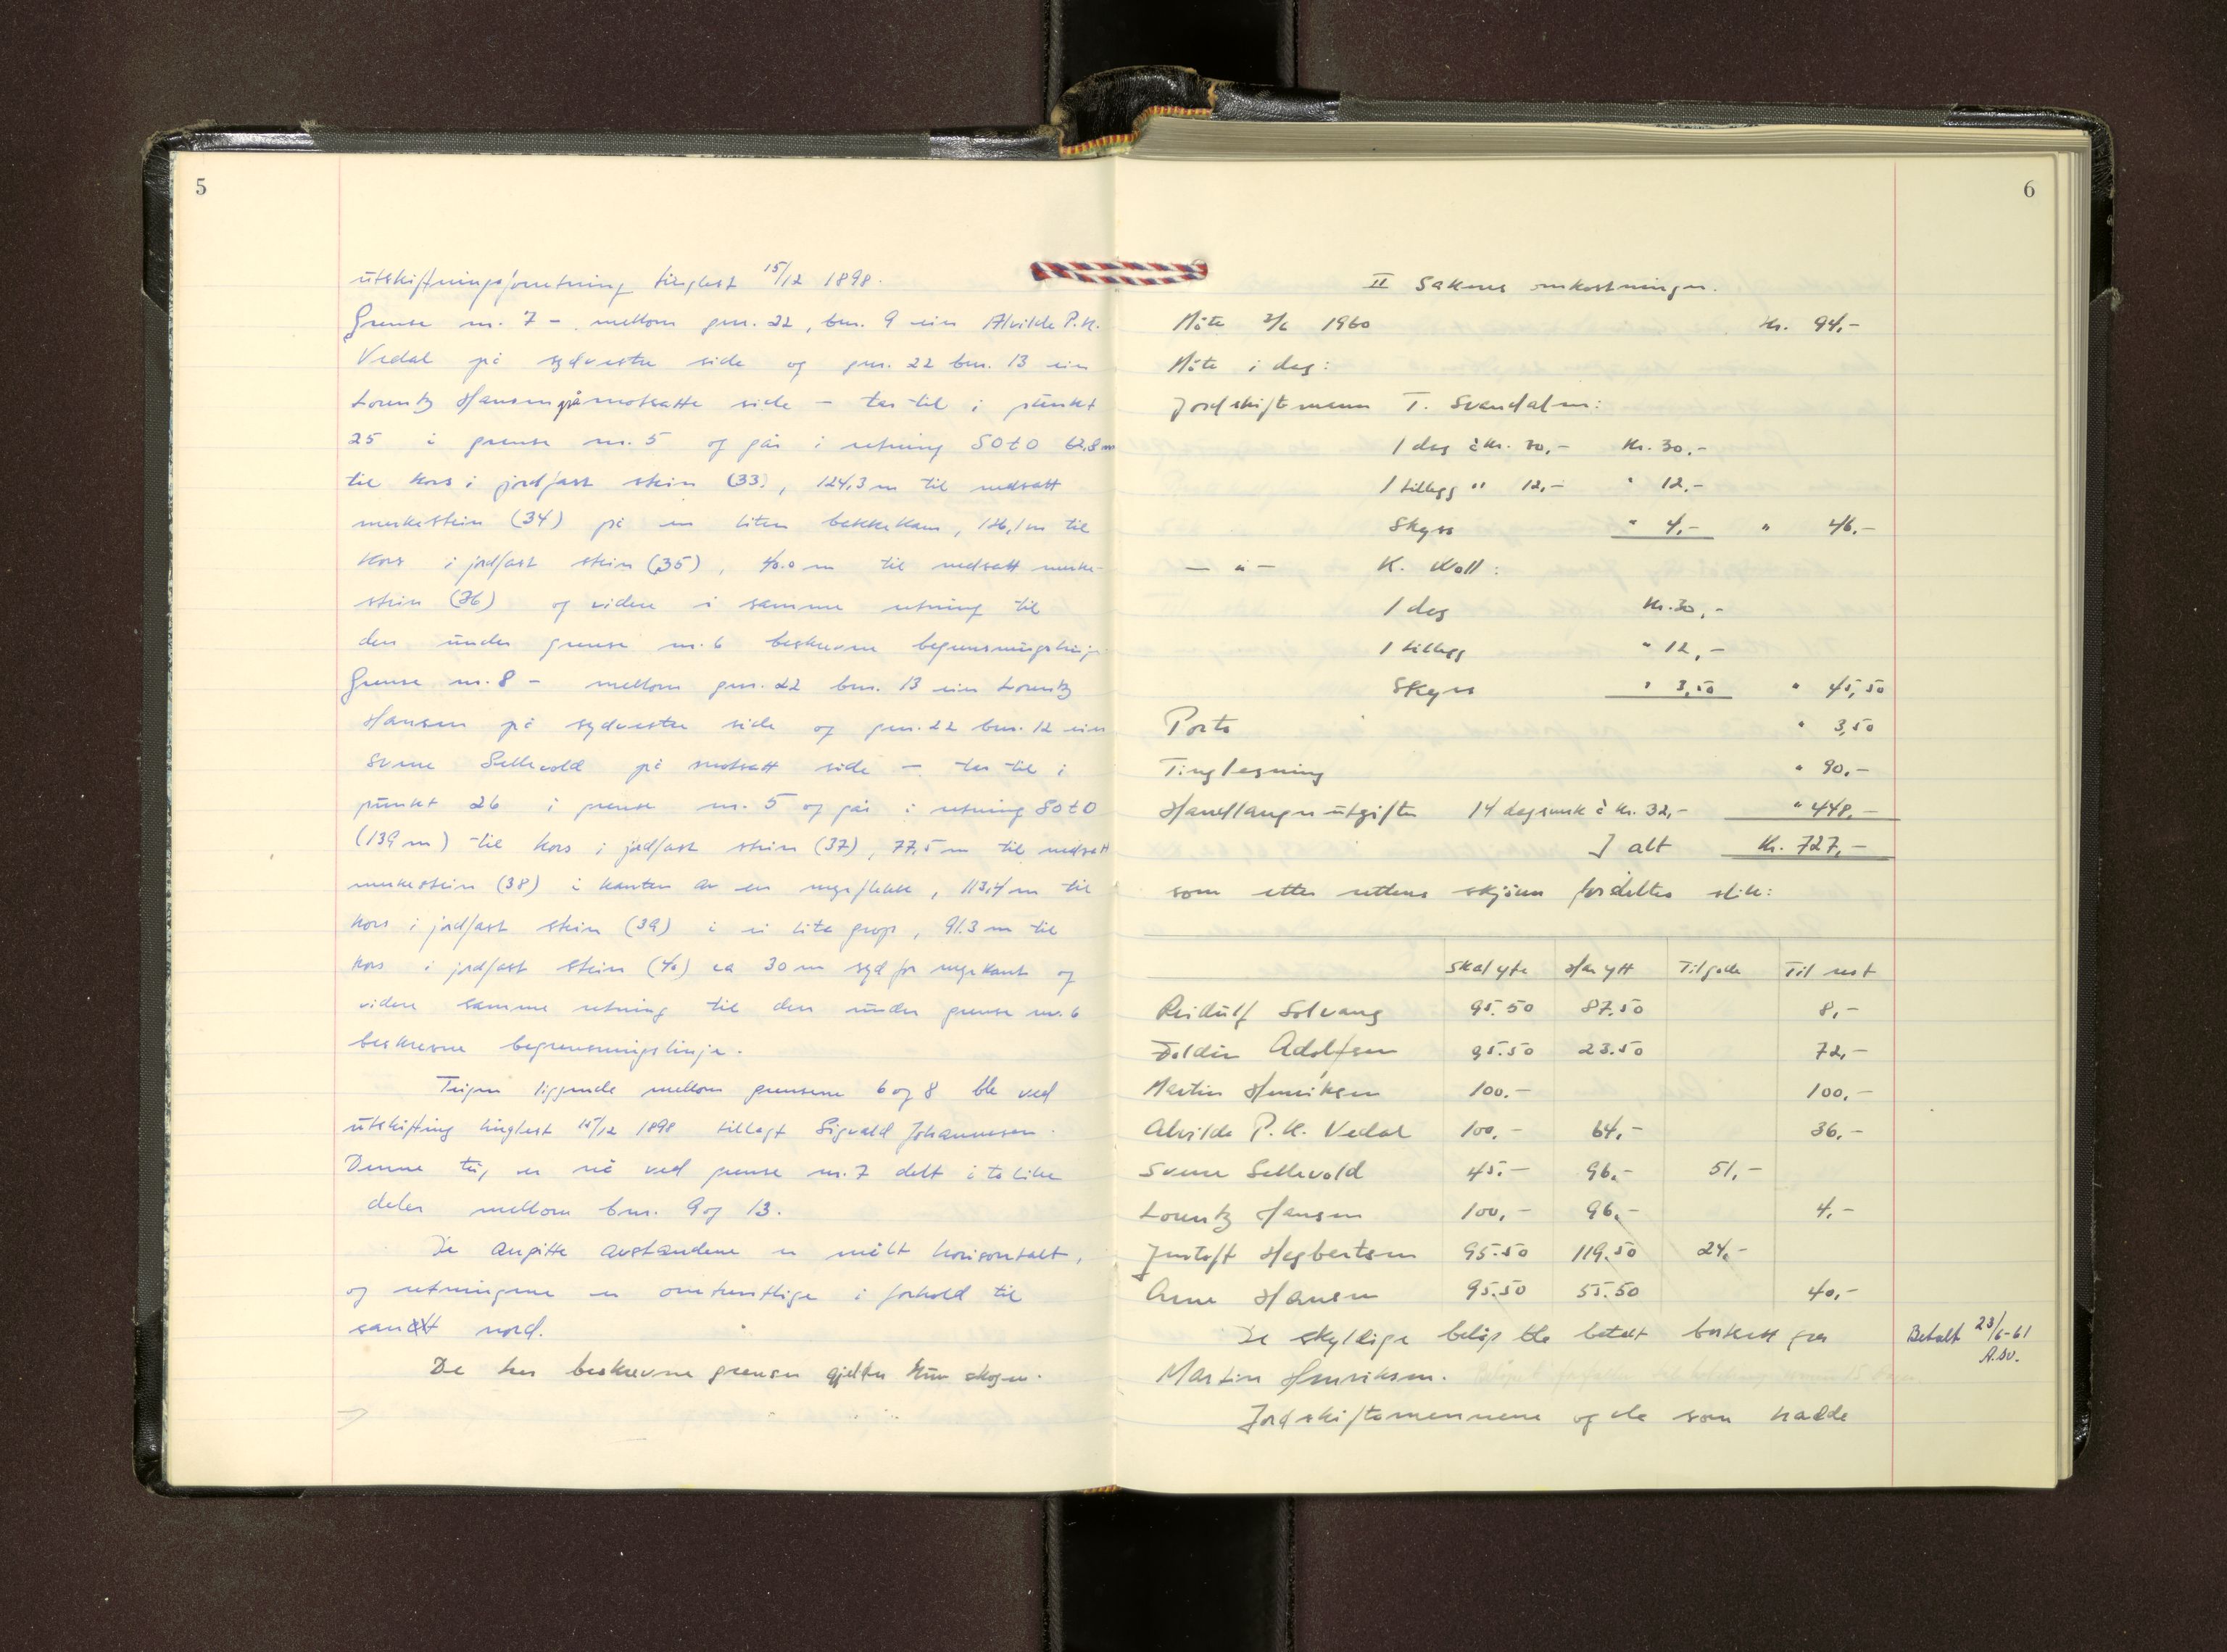 5
utskiftningsforretning tinglest 15/12 1898.
Grense nr. 7 – mellom gnr. 22, bnr. 9 ein Alvilde P.K.
Vedal på sydvestre side og gnr. 22 bnr. 13 ein
Lorentz Hansen på motsatte side – tar til i punkt
25 i grense nr. 5 og går i retning SOtO 62,8 m
til kors i jordfast stein (33), 124,3 m til nedsatt
merkestein (34) på en liten bakkekam, 126,1 m til
kors i jordfast stein (35), 40.0 m til nedsatt merke-
stein (36) og videre i samme retning til
den under grense nr. 6 beskrevne begrensningslinje
Grense nr. 8 – mellom gnr. 22 bnr. 13 ein Lorentz
Hansen på sydvestre side og gnr. 22 bnr. 12 ein
Sverre Sellevold på motsatt side – tar til i
punkt 26 i grense nr. 5 og går i retning SOtO
(139 m) til kors i jordfast stein (37), 77,5 m til nedsatt
merkestein (38) i kanten av en myrflekk, 113,4 m til
kors i jordfast stein (39) i ei lita grop, 91.3 m til
kors i jordfast stein (40) ca 30 m syd for myrkant og
videre samme retning til den under grense nr. 6
beskrevne begrensningslinje.
Teigen liggende mellom grensene 6 og 8 ble ved
utskifting tinglest 15/12 1898 tillagt Sigvald Johannesen.
Denne teig er nå ved grense nr. 7 delt i to like
deler mellom bnr. 9 og 13.
De angitte avstandene er målt horisontalt,
og retningene er omtrentlige i forhold til
sann nord.
De her beskrevne grenser gjelder kun skogen.
6
II Sakens omkostninger.
Møte 2/6 1960 Kr. 94,-
Møte i dag:
Jordskiftemenn T. Svendalm:
1 dag à kr. 30,- Kr. 30,-
1 tillegg " 12,- " 12,-
Skyss " 4,- " 46,-
— " — K. Woll:
1 dag Kr. 30,-
1 tillegg " 12,-
Skyss " 3,50 " 45,50
Porto " 3,50
Tinglesning " 90,-
Handlangerutgifter 14 dagsverk à kr. 32,- " 448,-
I alt Kr. 727,-
som etter rettens skjønn fordeltes slik:
Skal yte Har ytt Tilgode Til rest
Reidulf Solvang 95.50 87.50 8,-
Foldin Adolfsen 95.50 23.50 72,-
Martin Henriksen 100.- 100,-
Alvilde P. K. Vedal 100,- 64,- 36,-
Sverre Sellevold 45,- 96,- 51,-
Lorentz Hansen 100,- 96,- 4,-
Jentoft Hegbertsen 95.50 119.50 24,-
Arne Hansen 95.50 55.50 40,-
De skyldige beløp ble betalt bortsett fra
Betalt 23/6-61
A.Sv.
Martin Henriksen.
Jordskiftemennene og de som hadde